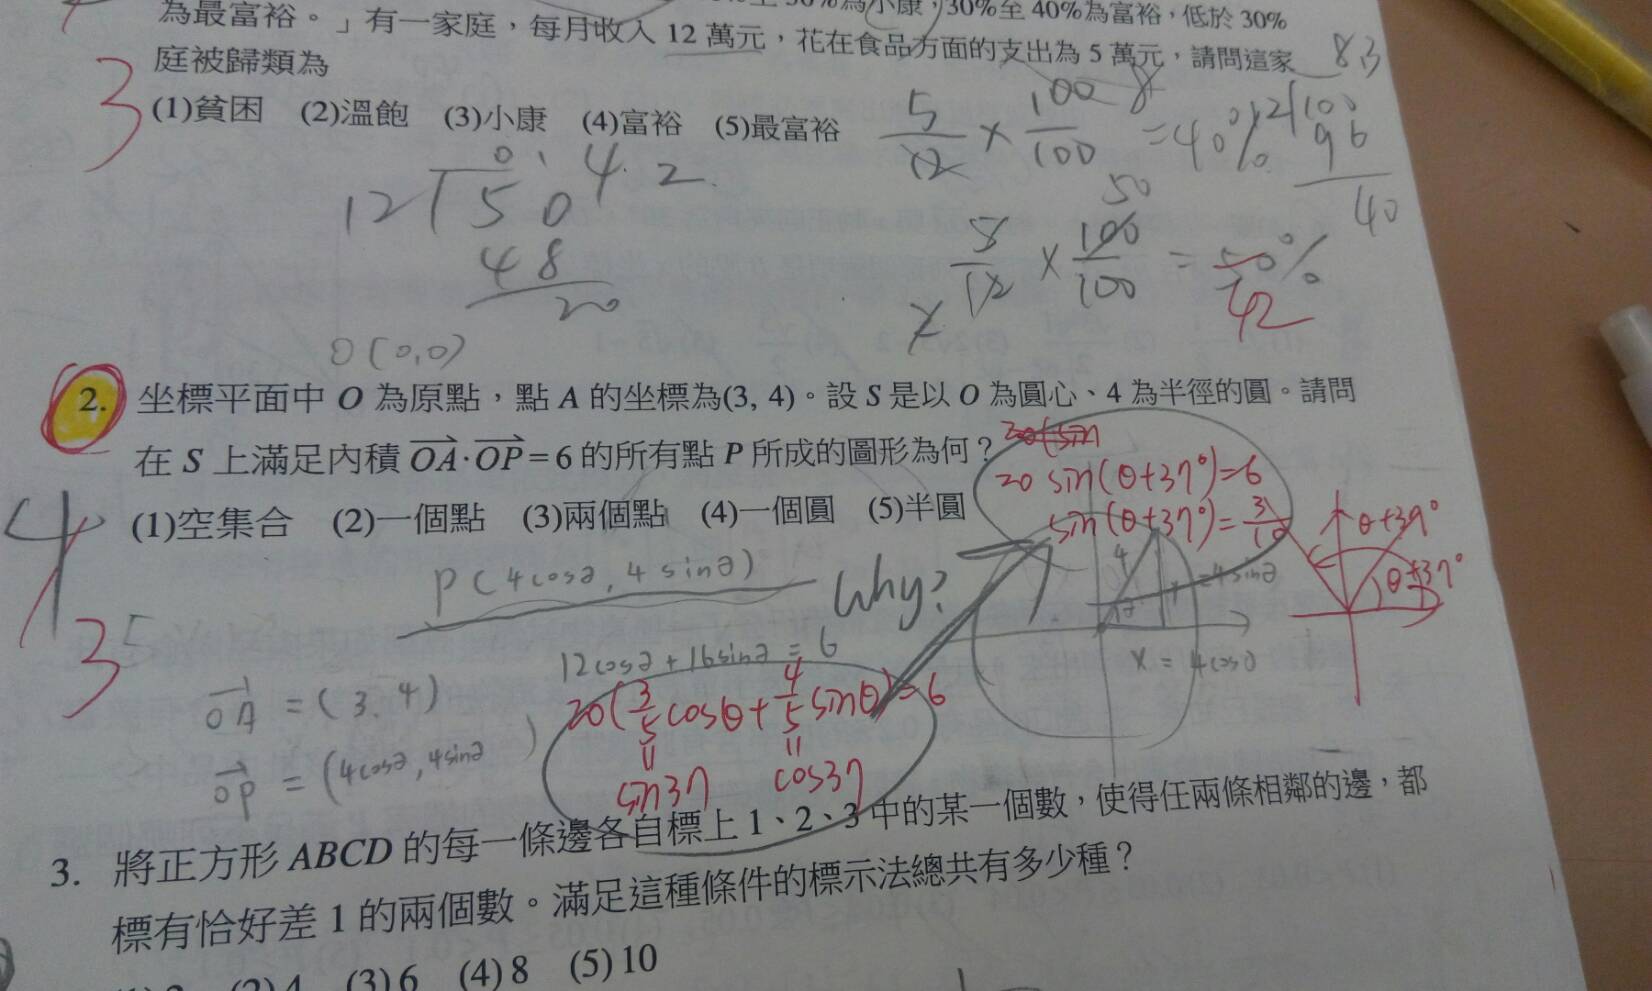 小康,30%至 40%為富裕,低於 30%
為最富裕。」有一家庭,每月收入 12 萬元,花在食品方面的支出為 5 萬元,請問這家
庭被歸類為
8.3
3
(1)貧困 (2)溫飽 (3)小康 (4)富裕 (5)最富裕
5/12 × 100/100 = 40%
12 100
96
40
0.42
12 50
48
20
5/12 × 100/100 = 50%
50
42
O(0,0)
2. 坐標平面中 O 為原點,點 A 的坐標為(3, 4)。設 S 是以 O 為圓心、4 為半徑的圓。請問
在 S 上滿足內積 OA·OP=6 的所有點 P 所成的圖形為何?
20 sin(θ+37°)=6
sin(θ+37°)=3/10
(1)空集合 (2)一個點 (3)兩個點 (4)一個圓 (5)半圓
4
3
P(4cosθ, 4sinθ) Why?
θ+37°
θ+37°
4
=4sinθ
x = 4cosθ
12cosθ+16sinθ = 6
20(3/5 cosθ+4/5 sinθ)=6
sin37 cos37
OA = (3, 4)
OP = (4cosθ, 4sinθ)
3. 將正方形 ABCD 的每一條邊各自標上 1、2、3 中的某一個數,使得任兩條相鄰的邊,都
標有恰好差 1 的兩個數。滿足這種條件的標示法總共有多少種?
(2) 4 (3) 6 (4) 8 (5) 10